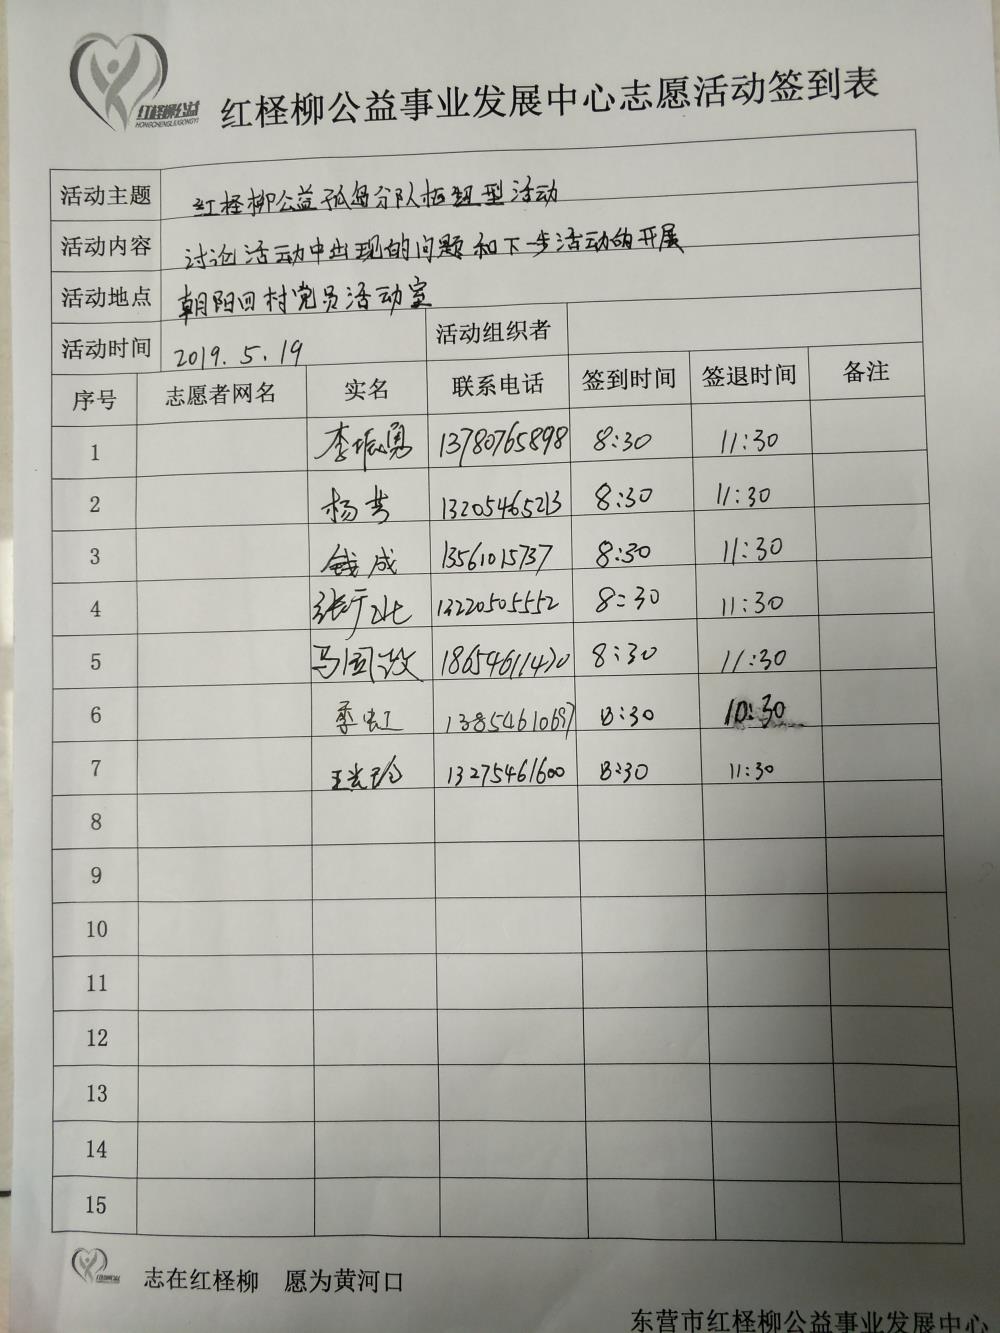 红柽柳公益
HONGCHENGLIUGONGYI
红柽柳公益事业发展中心志愿活动签到表
活动主题 红柽柳公益孤岛分队 型活动
活动内容 讨论活动中出现的问题和下一步活动的开展
活动地点 朝阳四村党员活动室
活动时间 2019.5.19 活动组织者
序号 志愿者网名 实名 联系电话 签到时间 签退时间 备注
1 李振勇 13780765898 8:30 11:30
2 杨 13205465213 8:30 11:30
3 钱成 13561015737 8:30 11:30
4 张 13220505552 8:30 11:30
5 马国 18654611420 8:30 11:30
6 季虹 13854610697 8:30 10:30
7 王 13275461600 8:30 11:30
8
9
10
11
12
13
14
15
志在红柽柳 愿为黄河口
东营市红柽柳公益事业发展中心